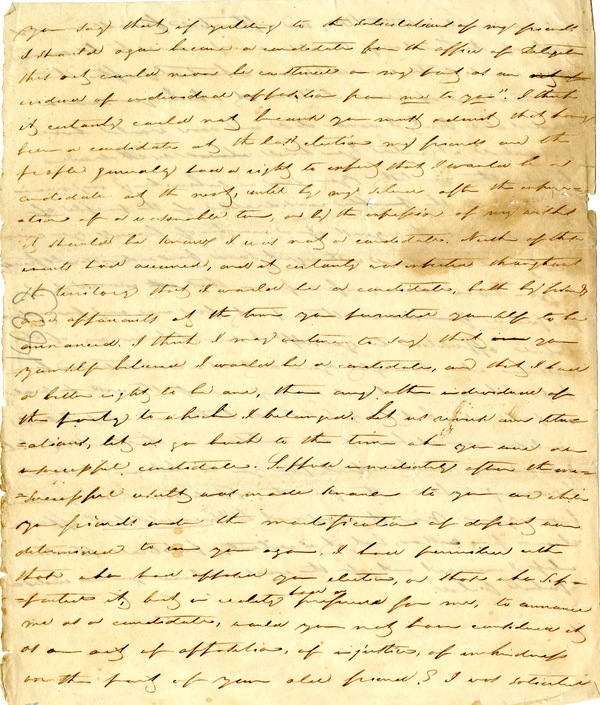 you say that if yielding to the solicitations of my friends
I should again become a candidate for the office of Delegate
that act could never be construed on my part as an
evidence of individual opposition from me to you". I think
it certainly could not, because you must admit that having
been a candidate at the last election my friends and the
people generally had a right to expect that I would be a
candidate at the next, until by my silence after the expir-
ation of a reasonable time, or by the expression of my wishes
it should be known I was not a candidate. Neither of these
events had occurred, and it certainly was expected throughout
the territory that I would be a candidate, both by friends
and opponents at the time you permitted yourself to be
announced. I think I may venture to say that you
yourself believed I would be a candidate, and that I had
a better right to be one, than any other individual of
the party to which I belonged. Let us our situ-
-ations, let us go back to the time when you were an
unsuccessful candidate. Suppose immediately after the un-
-successful result was made known to you and while
your friends under the mortification of defeat were
determined to run you again, I had permitted either
those who had opposed your election, or those who sup-
-ported it, but in reality had a preference for me, to announce
me as a candidate, would you not have considered it
as an act of opposition, of injustice, of unkindness
on the part of your old friend? I was solicited
1835